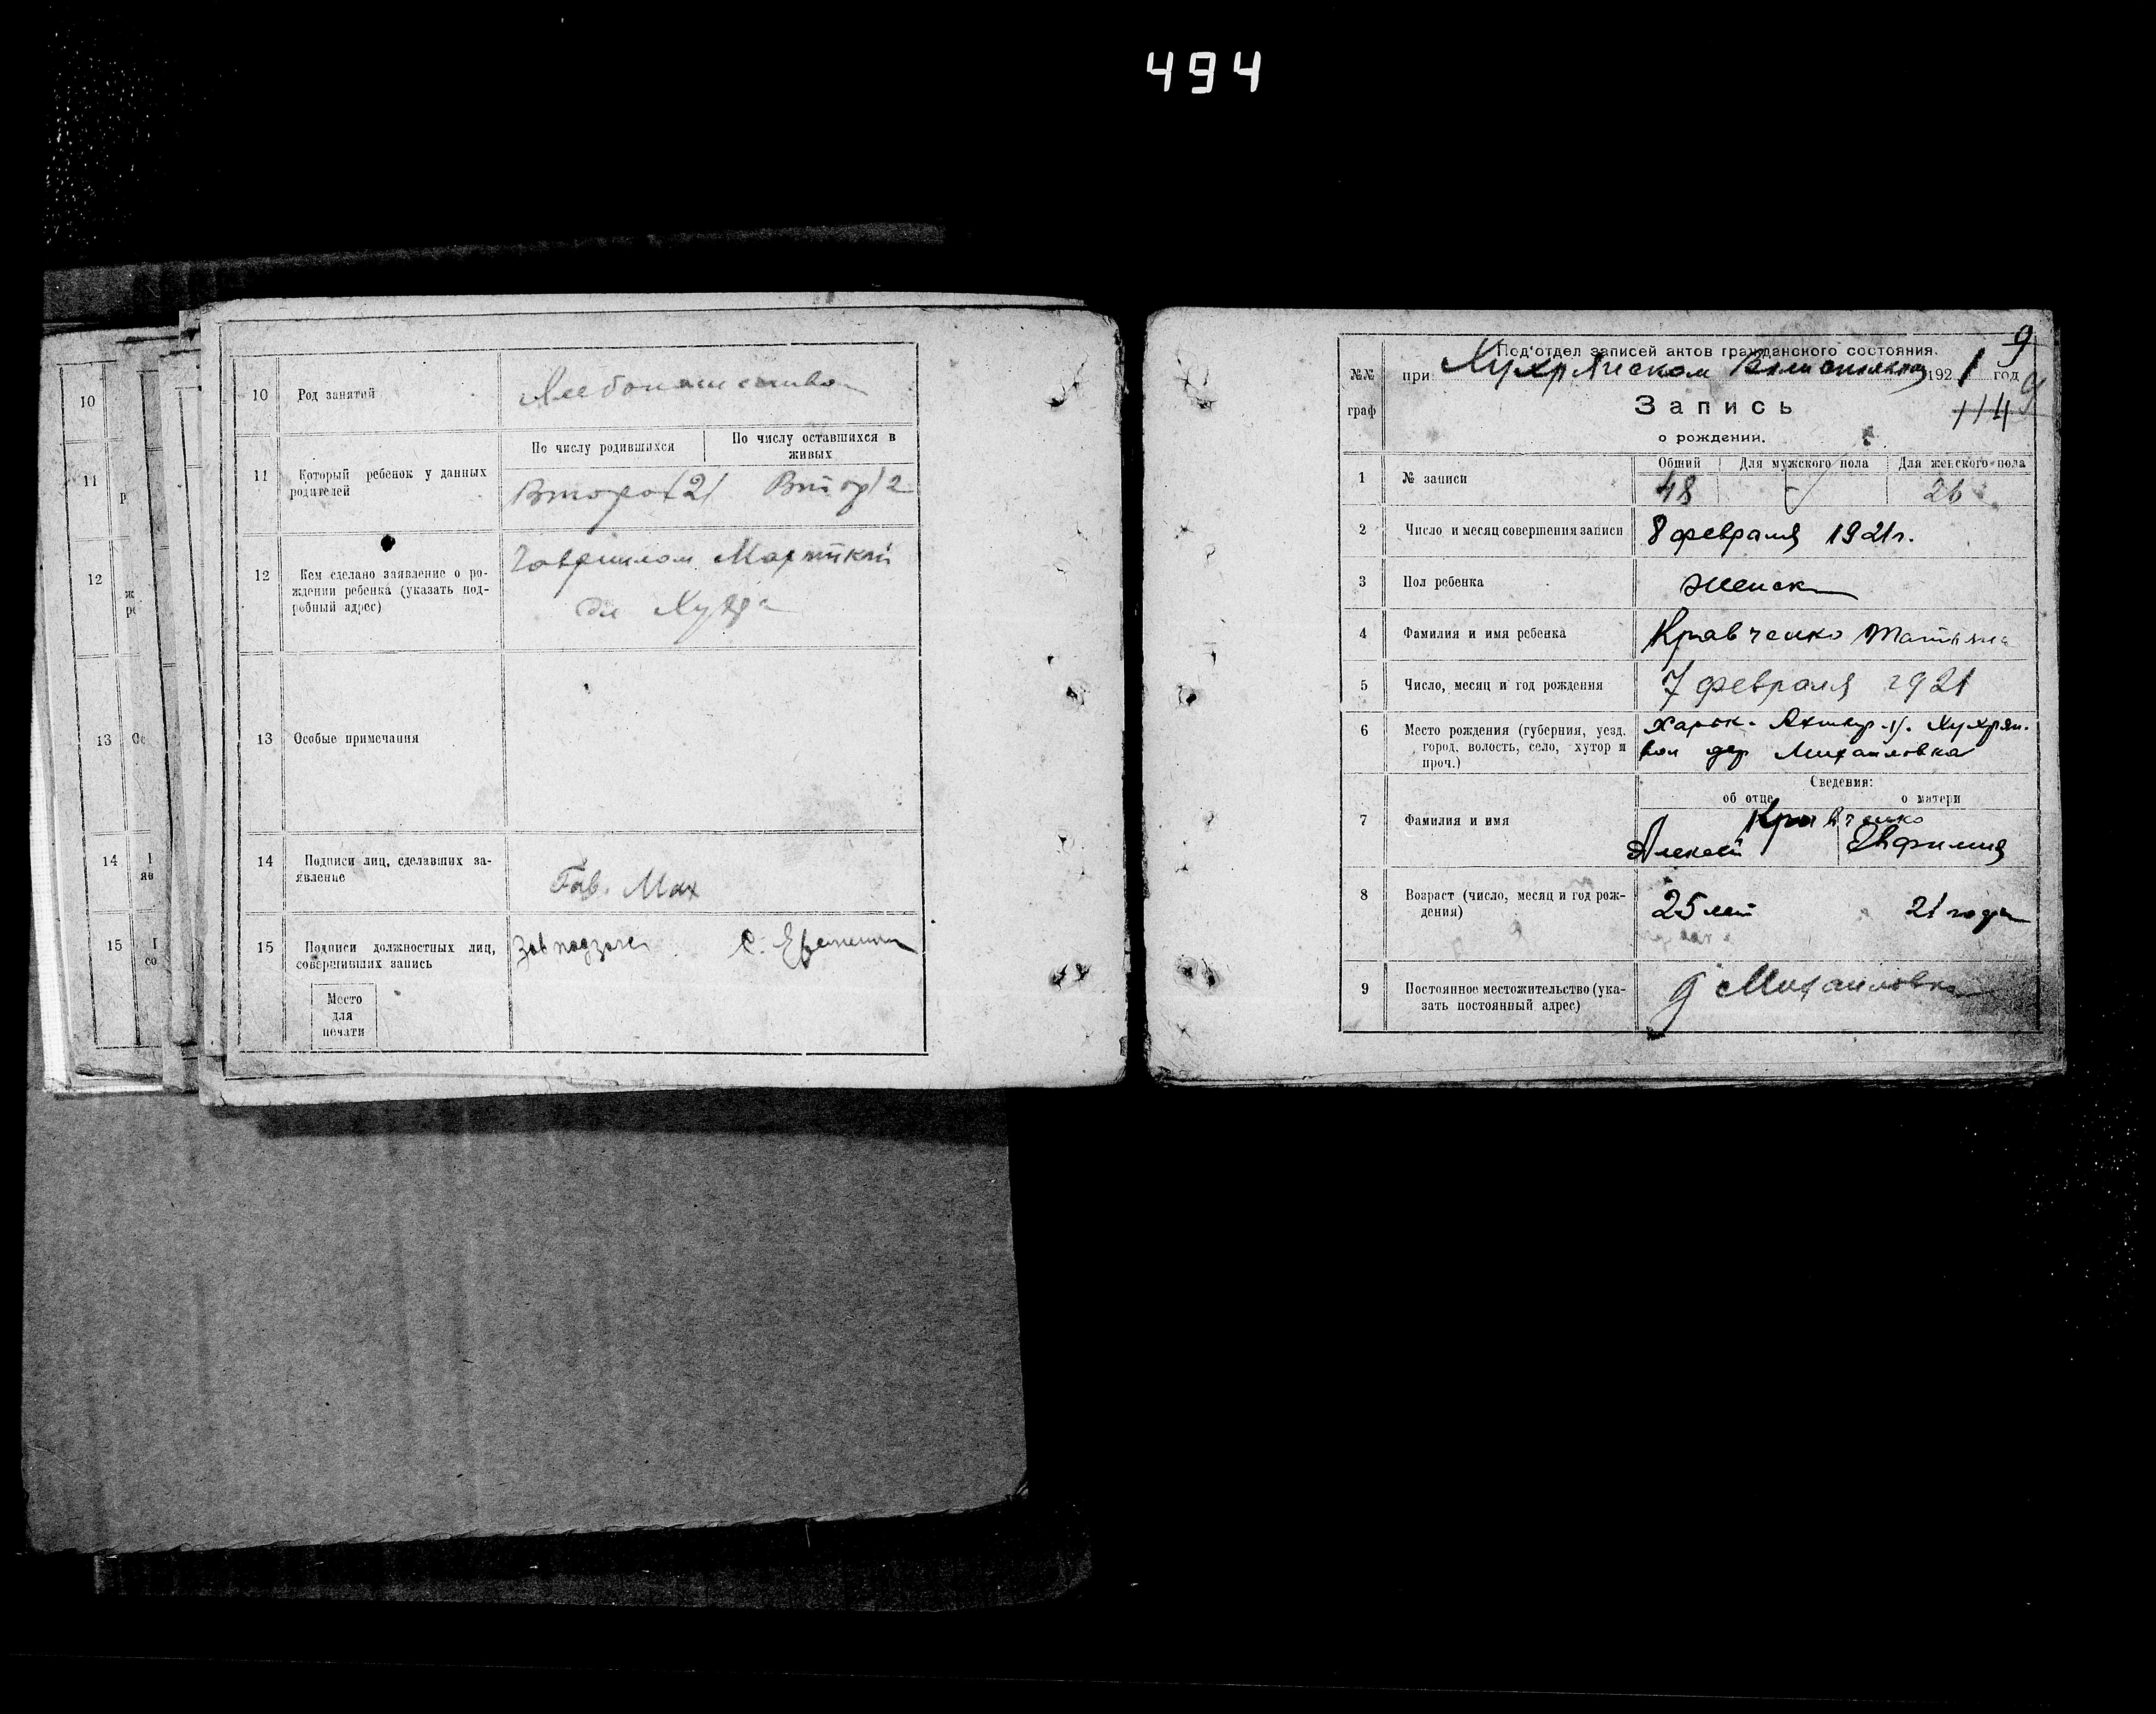 494
10 Род занятий Хлебопашество
11 Который ребенок у данных родителей
По числу родившихся
По числу оставшихся в живых
Второй (2)
Втор 2
12 Кем сделано заявление о ро-
ждении ребенка (указать под-
робный адрес)
Гаврилом
13 Особые примечания
14 Подписи лиц, сделавших за-
явление
Гав. Мах
15 Подписи должностных лиц,
совершивших запись
С.
Место
для
печати
10
11
12
13
14
15
9
Под'отдел записей актов гражданского состояния.
№№ при Хухрянском 1921 год
9
граф
Запись
114
о рождении.
1 № записи
Общий Для мужского пола Для женского пола
48 - 26
2 Число и месяц совершения записи 8 февраля 1921 г.
3 Пол ребенка женск
4 Фамилия и имя ребенка Кравченко Татьяна
5 Число, месяц и год рождения 7 февраля 1921
6 Место рождения (губерния, уезд,
город, волость, село, хутор и
проч.)
Харьк. Ахтыр. у. Хухрян.
вол дер Михайловка
Сведения:
об отце о матери
7 Фамилия и имя
Кравченко
Алексей Евфимия
8 Возраст (число, месяц и год рож-
дения)
25 лет 21 года
9 Постоянное местожительство (ука-
зать постоянный адрес)
д Михайловка